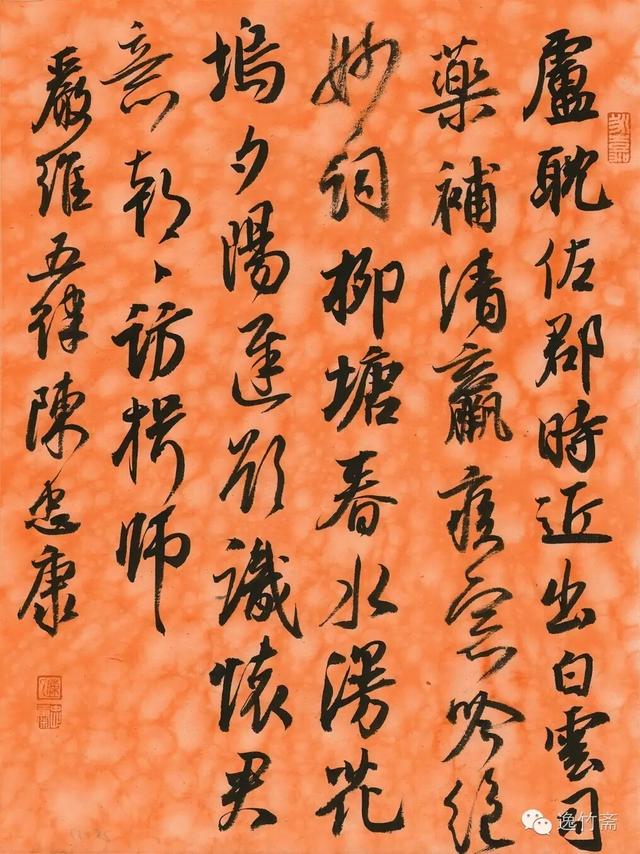 盧耽佐郡時近出白雲司
藥補清羸疾窓吟絕
妙詞柳塘春水漫花
塢夕陽遲欲識懷君
意朝〻訪楫師
嚴維五律陳忠康
逸竹斋